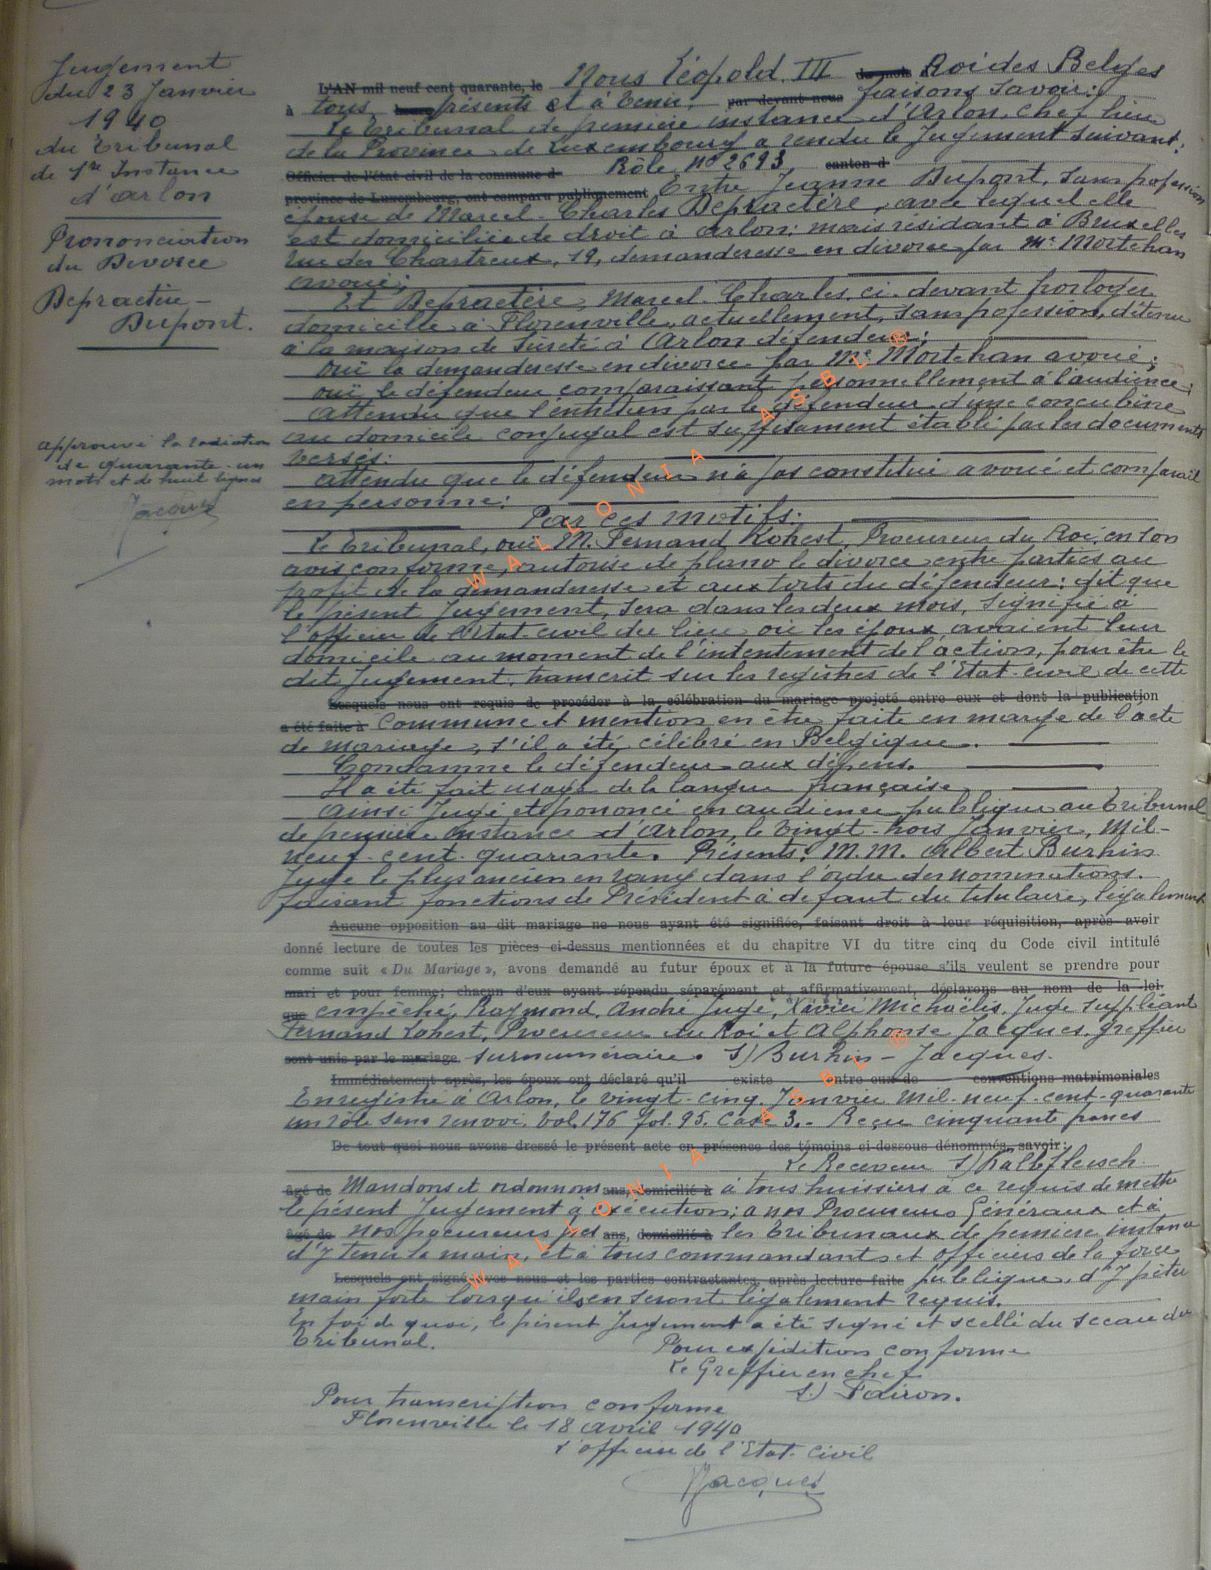 Jugement
du 23 Janvier
1940
du Tribunal
de 1re Instance
d'Arlon
Prononciation
du Divorce
Depractère -
Dupont.
approuvé la radiation
de quarante-un
mots et de huit lignes
Jacques
L'AN mil neuf cent quarante, le Nous Léopold III du mois Roi des Belges
à tous présents et à venir, par devant nous faisons savoir:
Le Tribunal de première instance d'Arlon, chef lieu
de la Province de Luxembourg a rendu le Jugement suivant;
Officier de l'état civil de la commune d Rôle No 2693 canton d
province de Luxembourg, ont comparu publiquement Entre Jeanne Dupont, sans profession
épouse de Marcel-Charles Depractère, avec lequel elle
est domiciliée de droit à Arlon; mais résidant à Bruxelles
rue des Chartreux, 19, demanderesse en divorce par Me Mortehan
avoué;
Et Depractère, Marcel-Charles, ci-devant horloger
domicilié à Florenville, actuellement, sans profession, détenu
à la maison de sûreté à Arlon défendeur;
ouï la demanderesse en divorce par Me Mortehan avoué;
ouï le défendeur comparaissant personnellement à l'audience;
Attendu que l'entretien par le défendeur d'une concubine
au domicile conjugal est suffisament établi par les documents
versés:
attendu que le défendeur n'a pas constitué avoué et comparait
en personne:
Par ces motifs:
Le Tribunal, ouï M. Fernand Lohest, Procureur du Roi, en son
avis conforme, autorise de plano le divorce entre parties au
profit de la demanderesse et aux torts du défendeur; dit que
le présent Jugement, sera dans les deux mois, signifié à
l'officier de l'état-civil du lieu où les époux avaient leur
domicile au moment de l'intentement de l'action, pour être le
dit Jugement, transcrit sur les registres de l'Etat-civil de cette
Lesquels nous ont requis de procéder à la célébration du mariage projeté entre eux et dont la publication
a été faite à Commune et mention en être faite en marge de l'acte
de mariage, s'il a été célébré en Belgique.
Condamne le défendeur aux dépens.
Il a été fait usage de la langue française
Ainsi Jugé et prononcé en audience publique au Tribunal
de première instance d'Arlon, le vingt-trois Janvier, Mil-
neuf-cent-quarante. Présents: M.M. Albert Burhin
Juge le plus ancien en rang dans l'ordre des nominations.
faisant fonctions de Président à defaut du titulaire, légalement
Aucune opposition au dit mariage ne nous ayant été signifiée, faisant droit à leur réquisition, après avoir
donné lecture de toutes les pièces ci-dessus mentionnées et du chapitre VI du titre cinq du Code civil intitulé
comme suit « Du Mariage », avons demandé au futur époux et à la future épouse s'ils veulent se prendre pour
mari et pour femme; chacun d'eux ayant répondu séparément et affirmativement, déclarons au nom de la loi
que empêché, Raymond, André Juge, Xavier Michaëlis, Juge suppléant
Fernand Lohest, Procureur du Roi et Alphonse Jacques, greffier
sont unis par le mariage surnuméraire. S/ Burhin - Jacques.
Immédiatement après, les époux ont déclaré qu'il existe entre eux de conventions matrimoniales
Enregistré à Arlon, le vingt-cinq Janvier Mil-neuf-cent-quarante
un rôle sans renvoi. Vol. 176 fol. 95. Case 3. - Reçu cinquante francs
De tout quoi nous avons dressé le présent acte en présence des témoins ci-dessous dénommés, savoir:
Le Receveur S/ Kalbfleisch
âgé de Mandons et ordonnons ans, domicilié à à tous huissiers à ce requis de mettre
le présent Jugement à exécution; à nos Procureurs Généraux et à
âgé de nos procureurs près ans, domicilié à les Tribunaux de première instance
d'y tenir la main, et à tous commandants et officiers de la force
Lesquels ont signé avec nous et les parties contractantes, après lecture faite publique, d'y prêter
main forte lorsqu'ils en seront légalement requis.
En foi de quoi, le présent Jugement a été signé et scellé du sceau du
Tribunal.
Pour expédition conforme
Le Greffier en chef
S/ Fairon.
Pour transcription conforme
Florenville le 18 avril 1940
L'officier de l'Etat-civil
Jacques
WALLONIA ASBL ®
WALLONIA ASBL ®